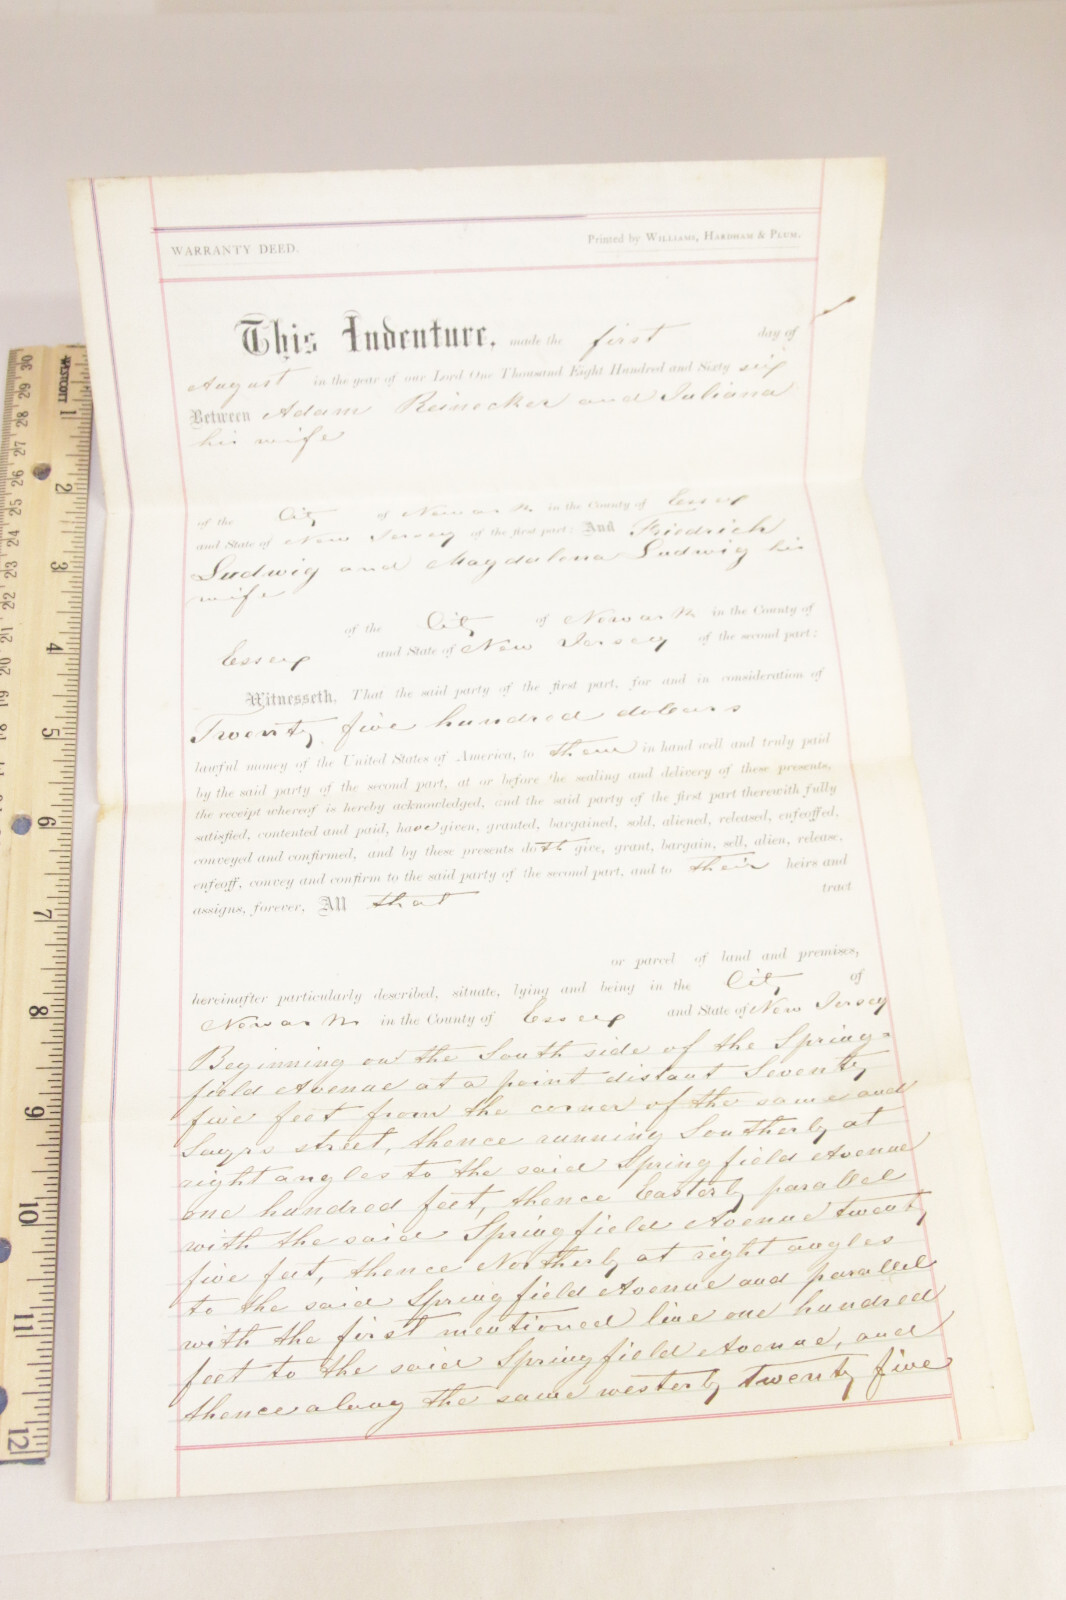 WARRANTY DEED.
Printed by WILLIAMS, HARDHAM & PLUM.
This Indenture, made the first day of
August in the year of our Lord One Thousand Eight Hundred and Sixty six
Between Adam Reinecker and Juliana
his wife
of the City of Newark in the County of Essex
and State of New Jersey of the first part; And Friedrich
Ludwig and Magdalena Ludwig his
wife
of the City of Newark in the County of
Essex and State of New Jersey of the second part;
Witnesseth, That the said party of the first part, for and in consideration of
Twenty five hundred dollars
lawful money of the United States of America, to them in hand well and truly paid
by the said party of the second part, at or before the sealing and delivery of these presents,
the receipt whereof is hereby acknowledged, and the said party of the first part therewith fully
satisfied, contented and paid, have given, granted, bargained, sold, aliened, released, enfeoffed,
conveyed and confirmed, and by these presents doth give, grant, bargain, sell, alien, release,
enfeoff, convey and confirm to the said party of the second part, and to their heirs and
assigns, forever, All that tract
or parcel of land and premises,
hereinafter particularly described, situate, lying and being in the City of
Newark in the County of Essex and State of New Jersey
Beginning on the South side of the Spring=
field Avenue at a point distant Seventy
five feet from the corner of the same and
Sayrs street, thence running Southerly at
right angles to the said Springfield Avenue
one hundred feet, thence Easterly parallel
with the said Springfield Avenue twenty
five feet, thence Northerly at right angles
to the said Springfield Avenue and parallel
with the first mentioned line one hundred
feet to the said Springfield Avenue, and
thence along the same westerly twenty five
WESTCOTT
1
2
3
4
5
6
7
8
9
10
11
12
30
29
28
27
26
25
24
23
22
21
20
19
18
17